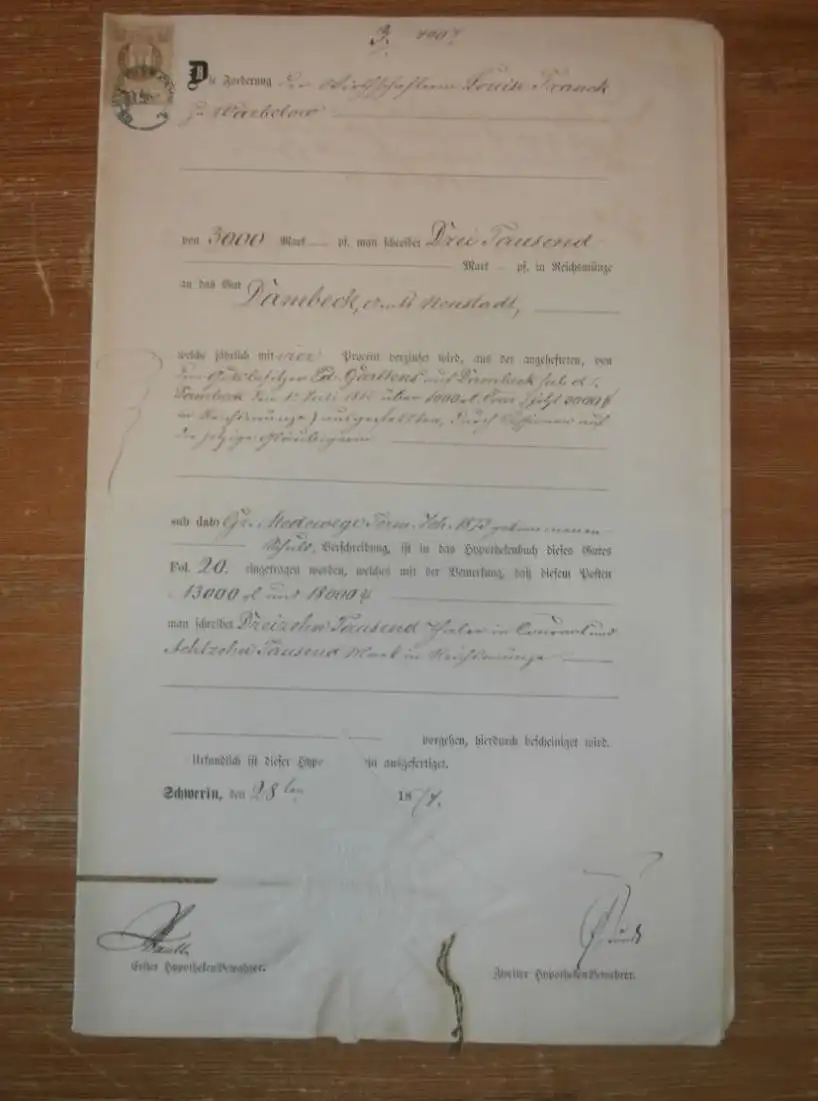 3.
Die Forderung der Wirthschafterin Louise Franck
zu Warbelow
von 3000 Mark pf. man schreibet Drei Tausend
Mark pf. in Reichsmünze
an das Gut Dambeck, Amts Neustadt,
welche jährlich mit vier Procent verzinset wird, aus der angehefteten, von
dem Gutsbesitzer Ed. auf Dambeck sub d.
Dambeck den 1. Juli über 1000 jetzt 3000
in Reichsmünze) ausgestellten, durch Cessionen auf
die jetzige Gläubigerin
sub dato Gr. Medewege Term. Joh. 1873 gekommenen
Schuld Verschreibung, ist in das Hypothekenbuch dieses Gutes
Fol. 20. eingetragen worden, welches mit der Bemerkung, daß diesem Posten
13000 und 18000
man schreibet Dreizehn Tausend Thaler in Courant und
Achtzehn Tausend Mark in Reichsmünze
vorgehen, hierdurch bescheiniget wird.
Urkundlich ist dieser Hypo in ausgefertiget.
Schwerin, den 28 ten 187
Erster HypothekenBewahrer.
Zweiter HypothekenBewahrer.